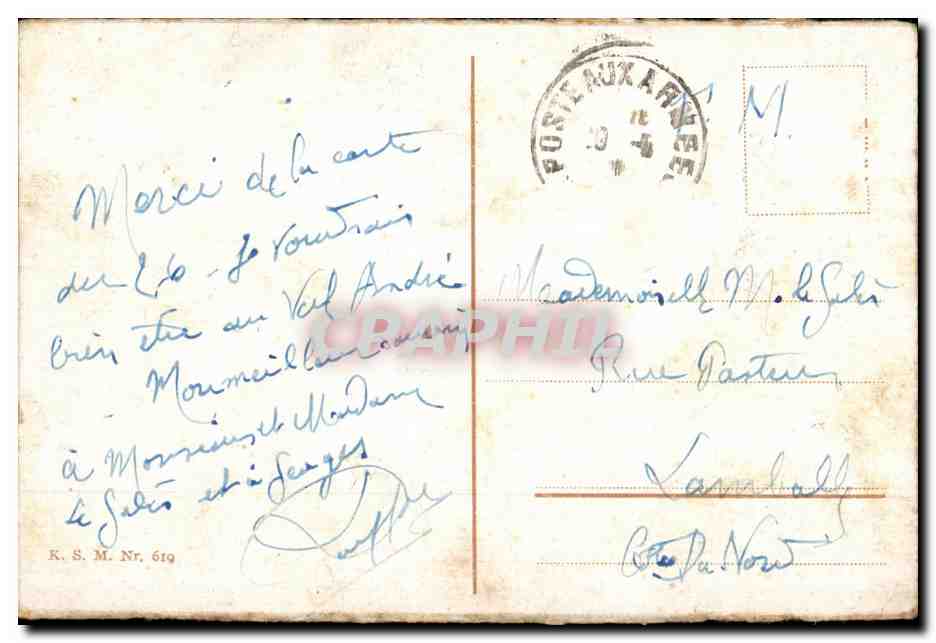 POSTE AUX ARMEES
F. M.
Merci de la carte
du 2/6 - Je voudrais
bien être au Val André
Mon meilleur souvenir
à Monsieur et Madame
le Galès et à Georges
K. S. M. Nr. 619
Mademoiselle M. le Galès
Rue Pasteur
Lamballe
Côtes Du Nord
CPAPHIL